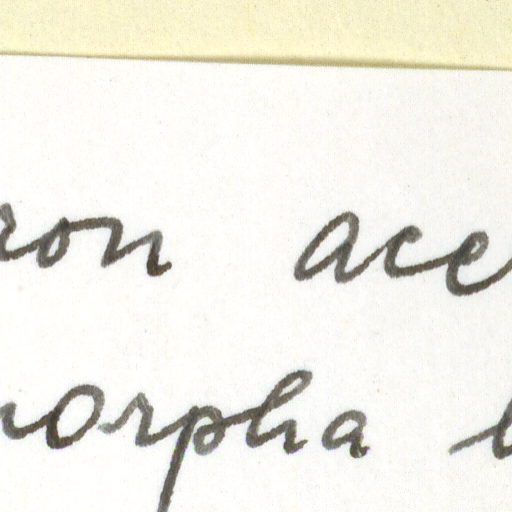 ron ace
morpha